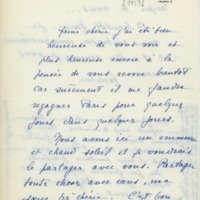 chérie j'ai été très
heureuse de vous voir et
plus heureuse encore à la
pensée de vous revoir bientôt
car surement il me faudra
regagner Paris pour quelques
jours dans quelques jours.
Nous avons ici un
et chaud soleil et je voudrais
le partager avec vous. Partager
toute chose avec vous, ma
chérie. C'est bon